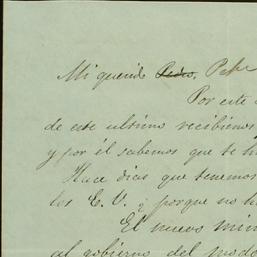 Mi querido Pedro, Pepe
Por este
de este ultimo recibimos
y por él sabemos que te h
Hace dias que tenemos
los E. U. y porque no h
El nuevo min
al gobierno del modo